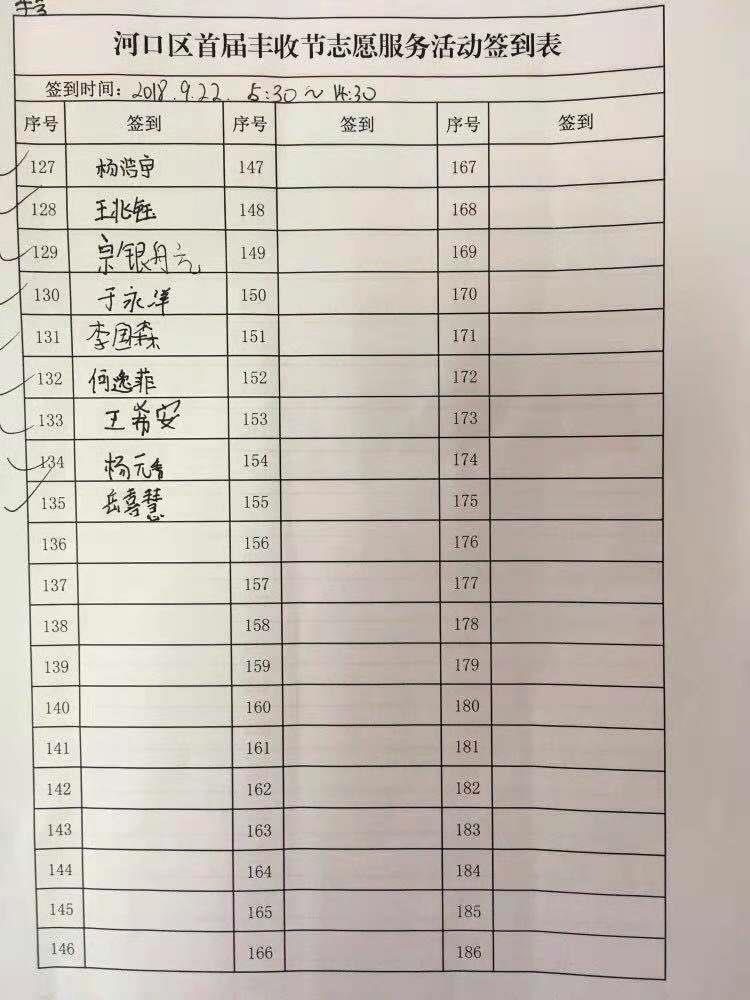 河口区首届丰收节志愿服务活动签到表
签到时间：2018.9.22. 5:30~14:30
序号 签到 序号 签到 序号 签到
127 杨浩宇 147 167
128 王兆钰 148 168
129 宗银月元 149 169
130 于永洋 150 170
131 李国森 151 171
132 何逸菲 152 172
133 王希安 153 173
134 杨元香 154 174
135 岳喜慧 155 175
136 156 176
137 157 177
138 158 178
139 159 179
140 160 180
141 161 181
142 162 182
143 163 183
144 164 184
145 165 185
146 166 186